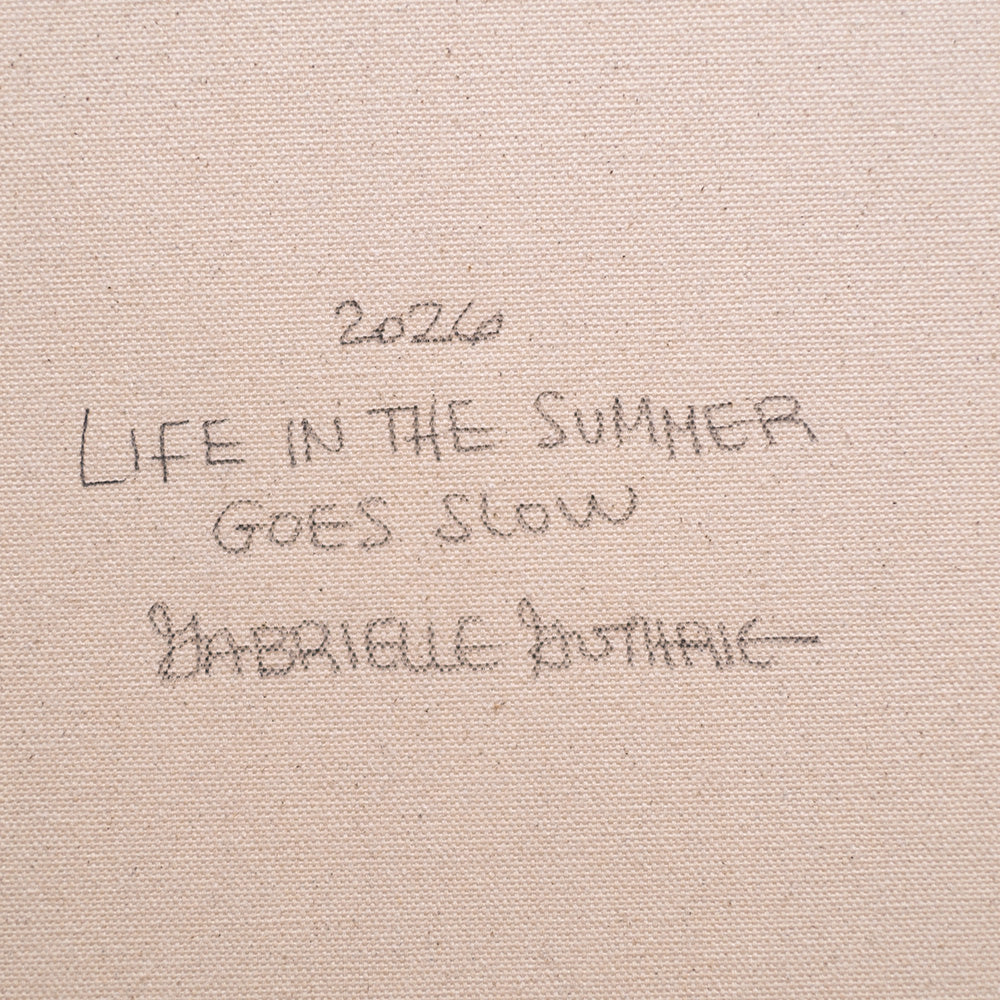 2026
LIFE IN THE SUMMER
GOES SLOW
GABRIELLE GUTHRIE